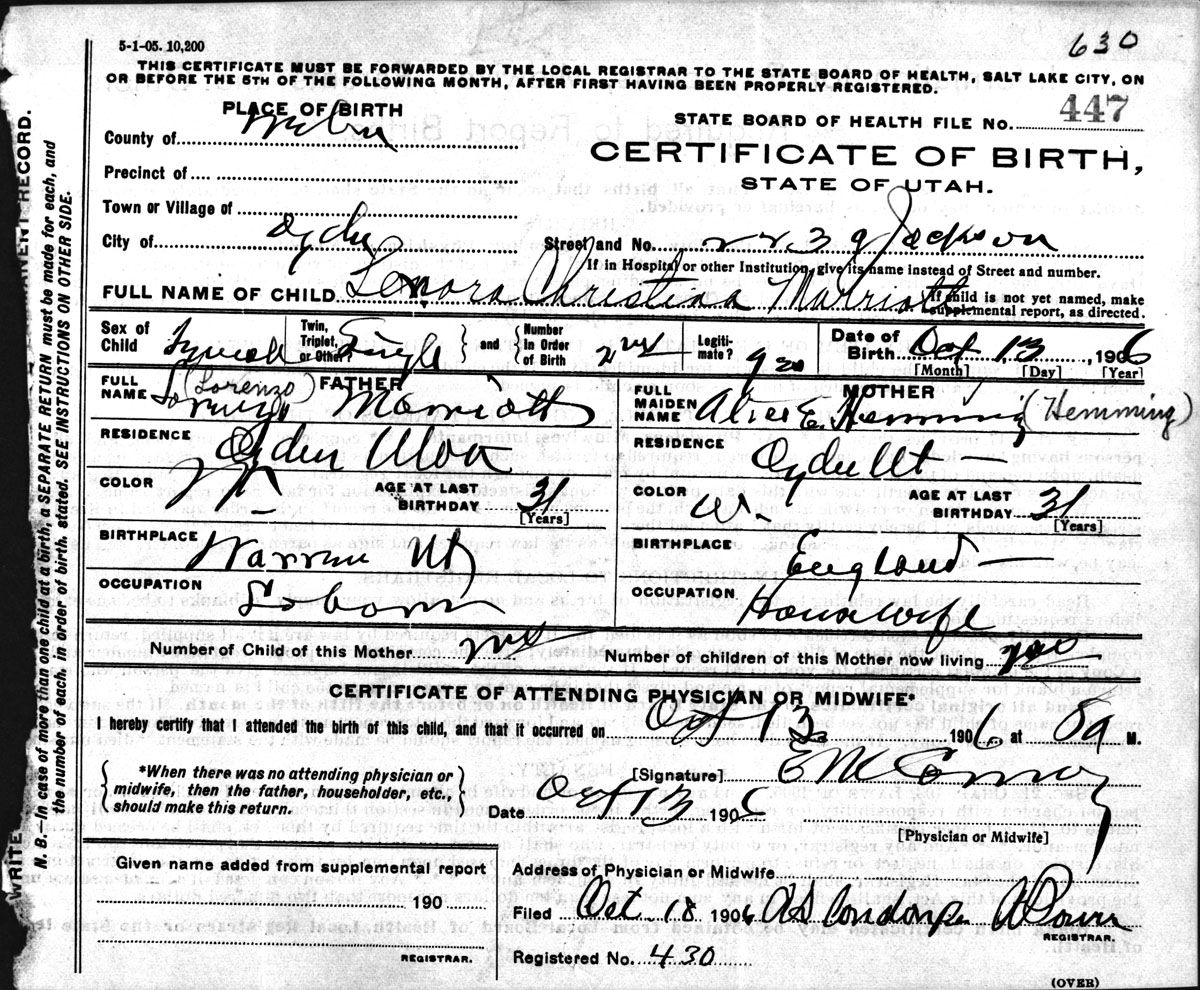 5-1-05. 10,200
630
THIS CERTIFICATE MUST BE FORWARDED BY THE LOCAL REGISTRAR TO THE STATE BOARD OF HEALTH, SALT LAKE CITY, ON
OR BEFORE THE 5TH OF THE FOLLOWING MONTH, AFTER FIRST HAVING BEEN PROPERLY REGISTERED.
PLACE OF BIRTH
STATE BOARD OF HEALTH FILE NO. 447
County of Weber
CERTIFICATE OF BIRTH,
STATE OF UTAH.
Precinct of
Town or Village of
City of Ogden
Street and No. 2239 Jackson
If in Hospital or other Institution, give its name instead of Street and number.
FULL NAME OF CHILD Lenora Christina Marriott
If child is not yet named, make
supplemental report, as directed.
Sex of Child Female
Twin, Triplet, or Other? Single
and
Number in Order of Birth 2nd
Legiti-mate? yes
Date of Birth Oct 13, 1906
[Month] [Day] [Year]
FATHER
FULL NAME (Lorenzo) Marriott
MOTHER
FULL MAIDEN NAME Alice E. Hemming (Hemming)
RESIDENCE Ogden
RESIDENCE Ogden Ut
COLOR W
AGE AT LAST BIRTHDAY 31
[Years]
COLOR W.
AGE AT LAST BIRTHDAY 31
[Years]
BIRTHPLACE Warren Ut
BIRTHPLACE England
OCCUPATION
OCCUPATION Housewife
Number of Child of this Mother
Number of children of this Mother now living
CERTIFICATE OF ATTENDING PHYSICIAN OR MIDWIFE*
I hereby certify that I attended the birth of this child, and that it occurred on Oct 13 1906, at M.
*When there was no attending physician or
midwife, then the father, householder, etc.,
should make this return.
[Signature]
Date Oct 13 190
[Physician or Midwife]
Given name added from supplemental report
190
REGISTRAR.
Address of Physician or Midwife
Filed Oct 18 1906
REGISTRAR.
Registered No. 430
(OVER)
WRITE
PERMANENT RECORD.
N.B.—In case of more than one child at a birth, a SEPARATE RETURN must be made for each, and
the number of each, in order of birth, stated. SEE INSTRUCTIONS ON OTHER SIDE.